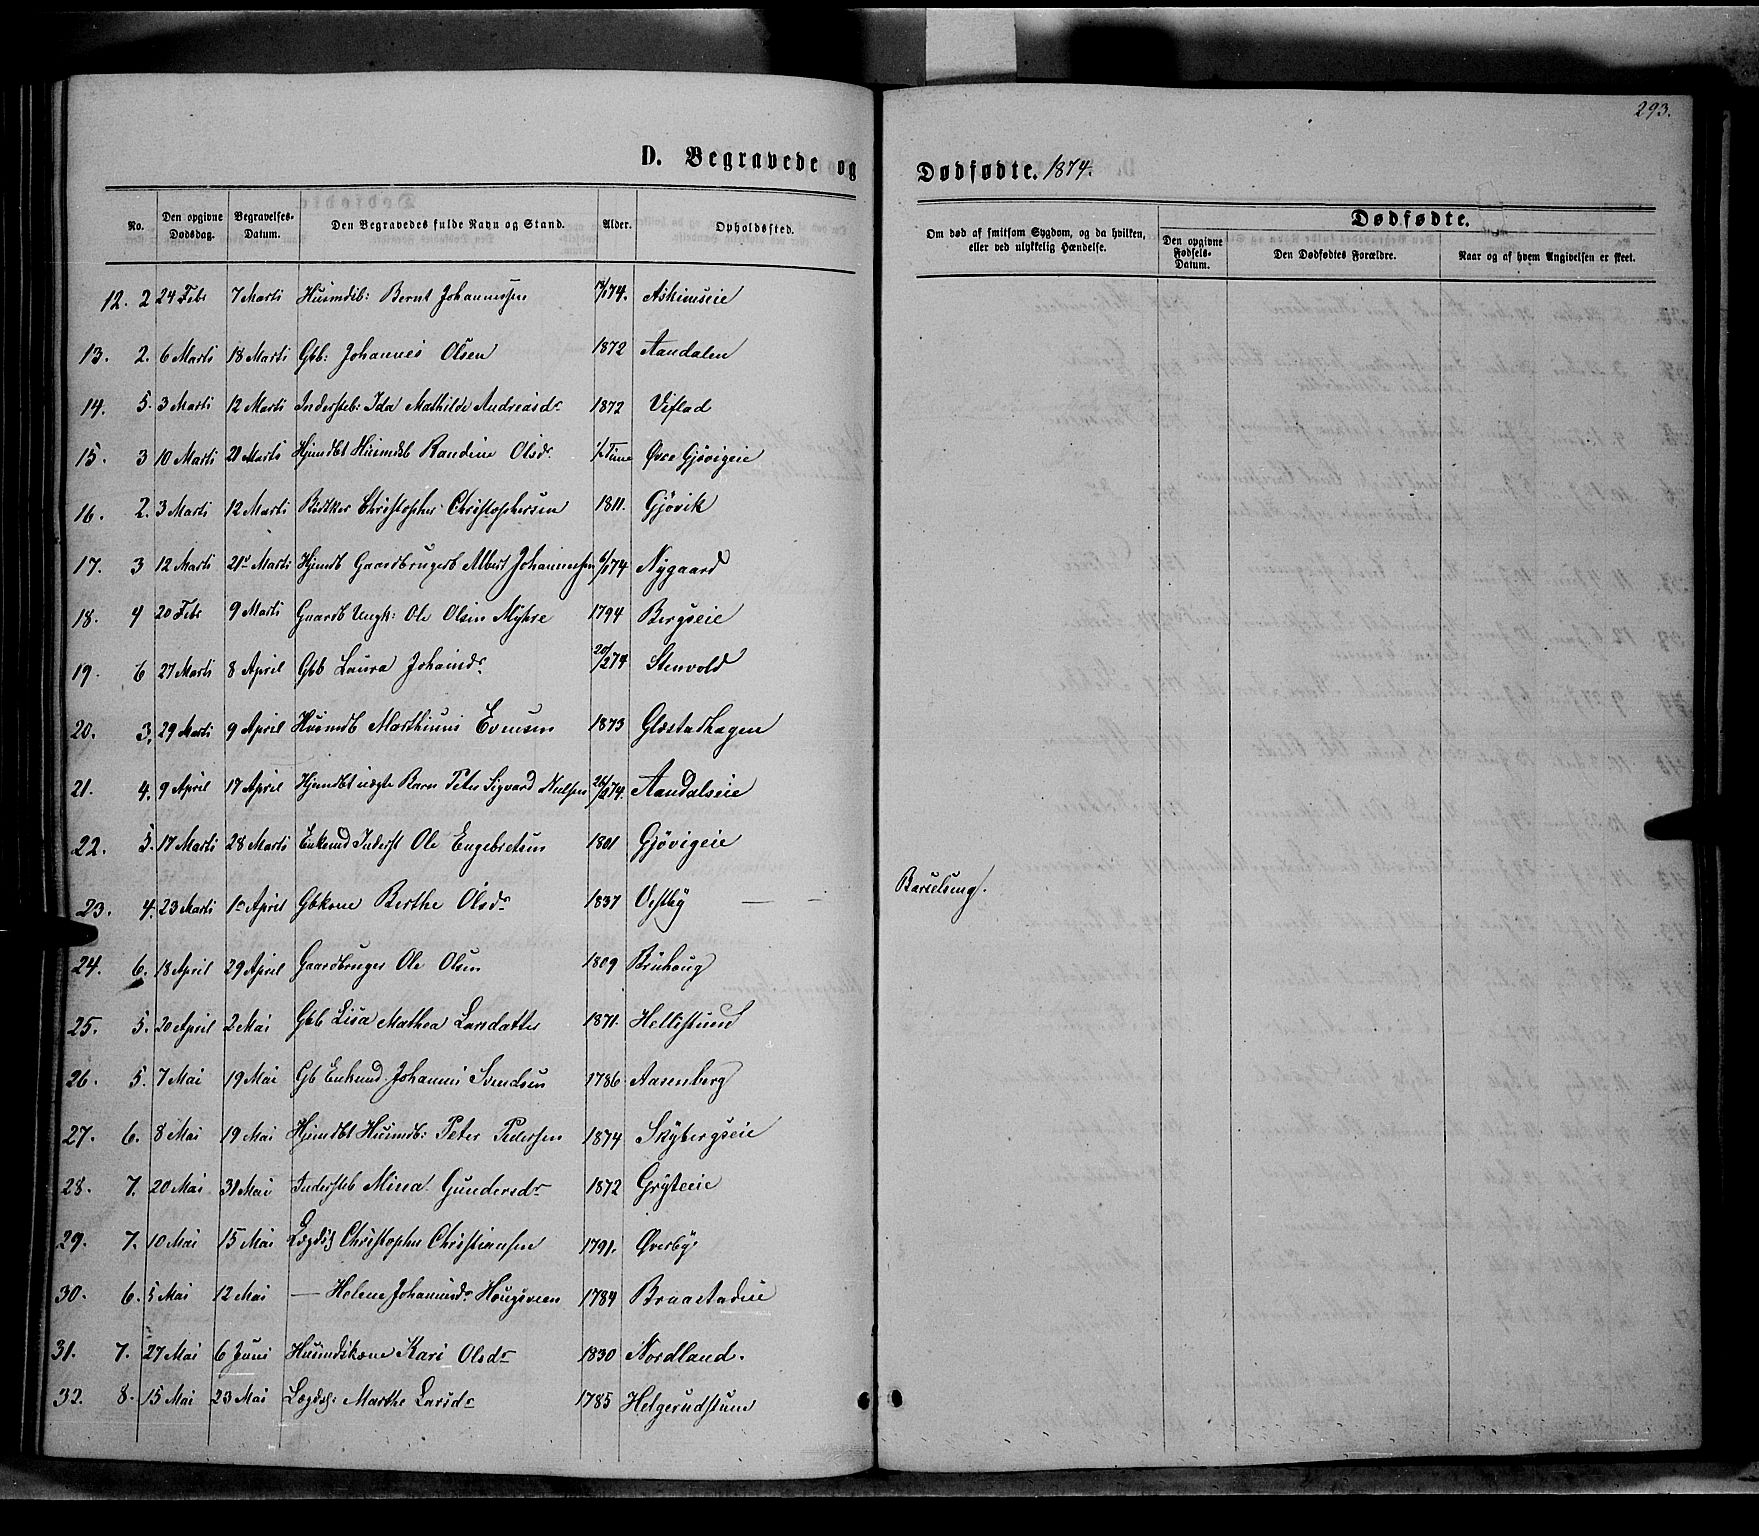 293.
D. Begravede og Dødfødte. 1874.
No. Den opgivne Dødsdag. Begravelses-Datum. Den Begravedes fulde Navn og Stand. Alder. Opholdssted. Om død af smitsom Sygdom, og da hvilken, eller ved ulykkelig Hændelse. Dødfødte. Den opgivne Fødsels-Datum. Den Dødfødtes Forældre. Naar og af hvem Angivelsen er skeet.
12. 2 24 Febr 7 Marti Husmdsb: Bernt Johannessen 74. Askimseie
13. 2. 6 Marti 18 Marti Gbb: Johannes Olsen 1872 Aandalen
14. 5. 3 Marti 12 Marti Indersteb: Ida Mathilde Andreasdr 1872 Viflad
15. 3 10 Marti 21 Marti Hjmdbt Husmdsb Randine Olsdr Time Øvre Gjøvigeie
16. 2. 3 Marti 12 Marti Bødker Christopher Christophersen 1811. Gjøvik
17. 3 12 Marti 21 Marti Hjemdb Gaardbrugerb Albert Johannessen 6/1 74 Nygaard
18. 4 20 Febr 9 Marti Gaardb Ungk: Ole Olsen Myhre 1794 Bergseie
19. 6 27 Marti 8 April Gbb Laura Johansdr 20/2 74 Stenvold
20. 3. 29 Marti 9 April Husmdb Marthinus Evensen 1873 Glæstadhagen
21. 4. 9 April 17 April Hjemdbt uægte Barn Peter Sigvard Nielsen 74. Aandalseie
22. 5. 17 Marti 28 Marti Enkemd Inderst Ole Engebretsen 1801 Gjøvigeie
23. 4. 23 Marti 1 April Gbkone Berthe Olsdr 1837 Vestby — — Barselseng.
24. 6. 18 April 29 April Gaardbruger Ole Olsen 1809 Bruhoug
25. 5. 20 April 2 Mai Gbb Lisa Mathea Larsdatter 1871. Hellestund
26. 5. 7 Mai 19 Mai Gb Enkemd Johannes Svendsen 1786 Aasenberg
27. 6. 8 Mai 19 Mai Hjemdbt Husmdb: Peter Pedersen 1874 Skybergseie
28. 7. 20 Mai 31 Mai Indersteb Mina Gundersdr 1872 Gryteeie
29. 7. 10 Mai 15 Mai Lægdslg Christopher Christiansen 1791. Øverby
30. 6. 5 Mai 12 Mai — Helene Johannesdr Hougsveen 1784 Braastadeie
31. 7. 27 Mai 6 Juni Husmdskone Kari Olsdr 1830 Nordland.
32. 8. 15 Mai 23 Mai Lægdsl: Marthe Larsdr 1785 Helgerudstuen